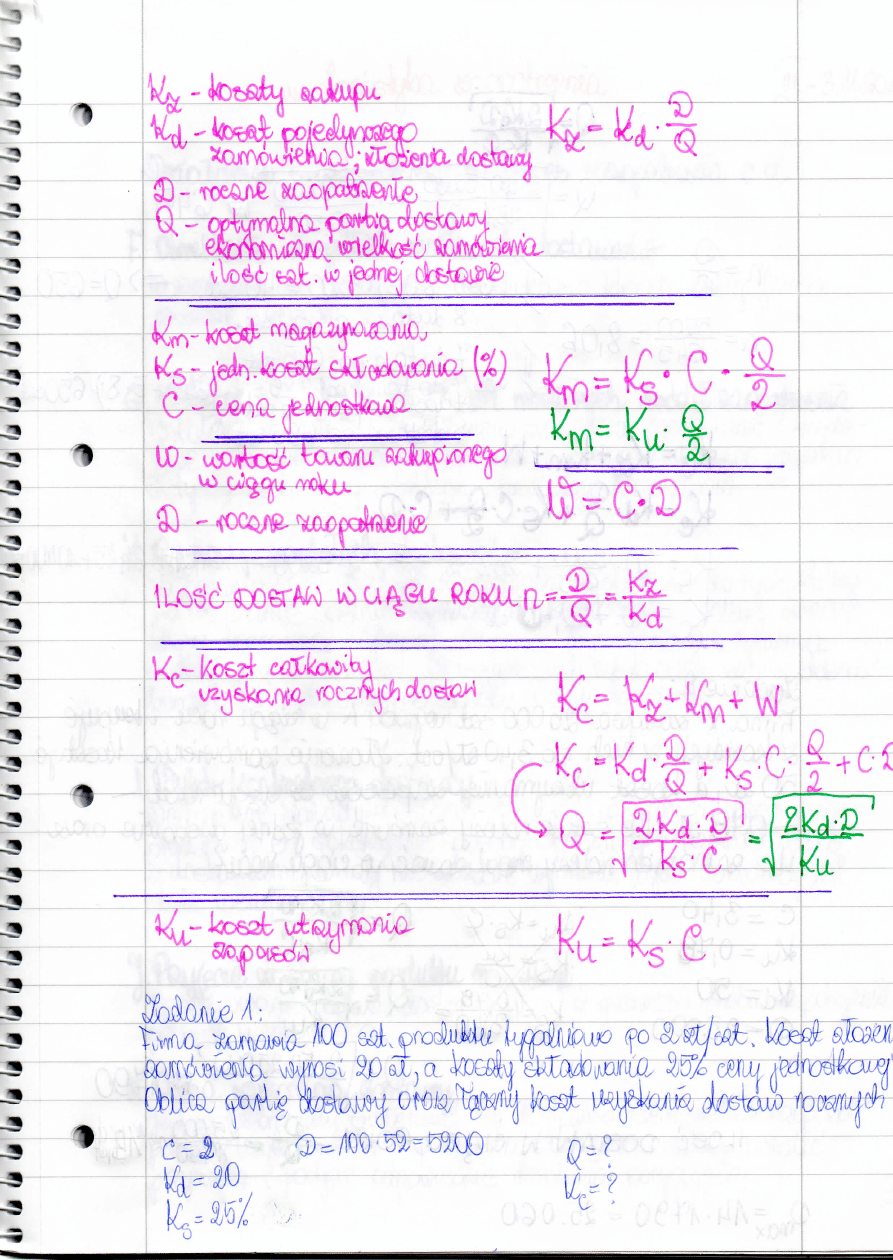 Kz - koszty zakupu
Kd - koszt pojedynczego
zamówienia; złożenia dostawy
Kz = Kd · D/Q
D - roczne zaopatrzenie
Q - optymalna partia dostawy
ekonomiczna wielkość zamówienia
ilość szt. w jednej dostawie
Km - koszt magazynowania
Ks - jedn. koszt składowania (%)
C - cena jednostkowa
Km = Ks · C · Q/2
Km = Ku · Q/2
W - wartość towaru zakupionego
w ciągu roku
D - roczne zaopatrzenie
W = C · D
ILOŚĆ DOSTAW W CIĄGU ROKU n = D/Q = Kz/Kd
Kc - koszt całkowity
uzyskania rocznych dostaw
Kc = Kz + Km + W
Kc = Kd · D/Q + Ks · C · Q/2 + C · D
Q = √(2Kd · D / Ks · C) = √(2Kd · D / Ku)
Ku - koszt utrzymania
zapasów
Ku = Ks · C
Zadanie 1:
Firma zamawia 100 szt. produktu tygodniowo po 2 zł/szt. Koszt złożen
zamówienia wynosi 20 zł, a koszty składowania 25% ceny jednostkowej
Oblicz partię dostawy oraz łączny koszt uzyskania dostaw rocznych
C = 2 D = 100 · 52 = 5200 Q = ?
Kd = 20 Kc = ?
Ks = 25%